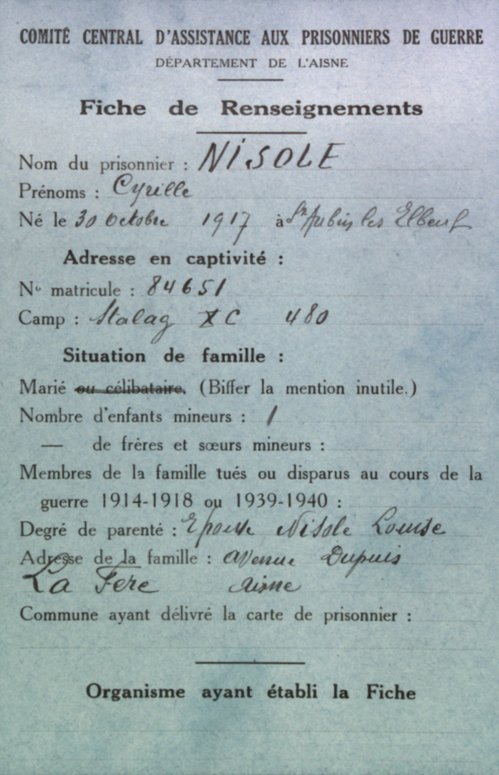 COMITÉ CENTRAL D'ASSISTANCE AUX PRISONNIERS DE GUERRE
DÉPARTEMENT DE L'AISNE
Fiche de Renseignements
Nom du prisonnier : NISOLE
Prénoms : Cyrille
Né le 30 Octobre 1917 à St Aubin les Elbeuf
Adresse en captivité :
No matricule : 84651
Camp : Stalag X C 480
Situation de famille :
Marié ou célibataire. (Biffer la mention inutile.)
Nombre d'enfants mineurs : 1
— de frères et sœurs mineurs :
Membres de la famille tués ou disparus au cours de la
guerre 1914-1918 ou 1939-1940 :
Degré de parenté : Epouse Nisole Louise
Adresse de la famille : Avenue Dupuis
La Fère Aisne
Commune ayant délivré la carte de prisonnier :
Organisme ayant établi la Fiche